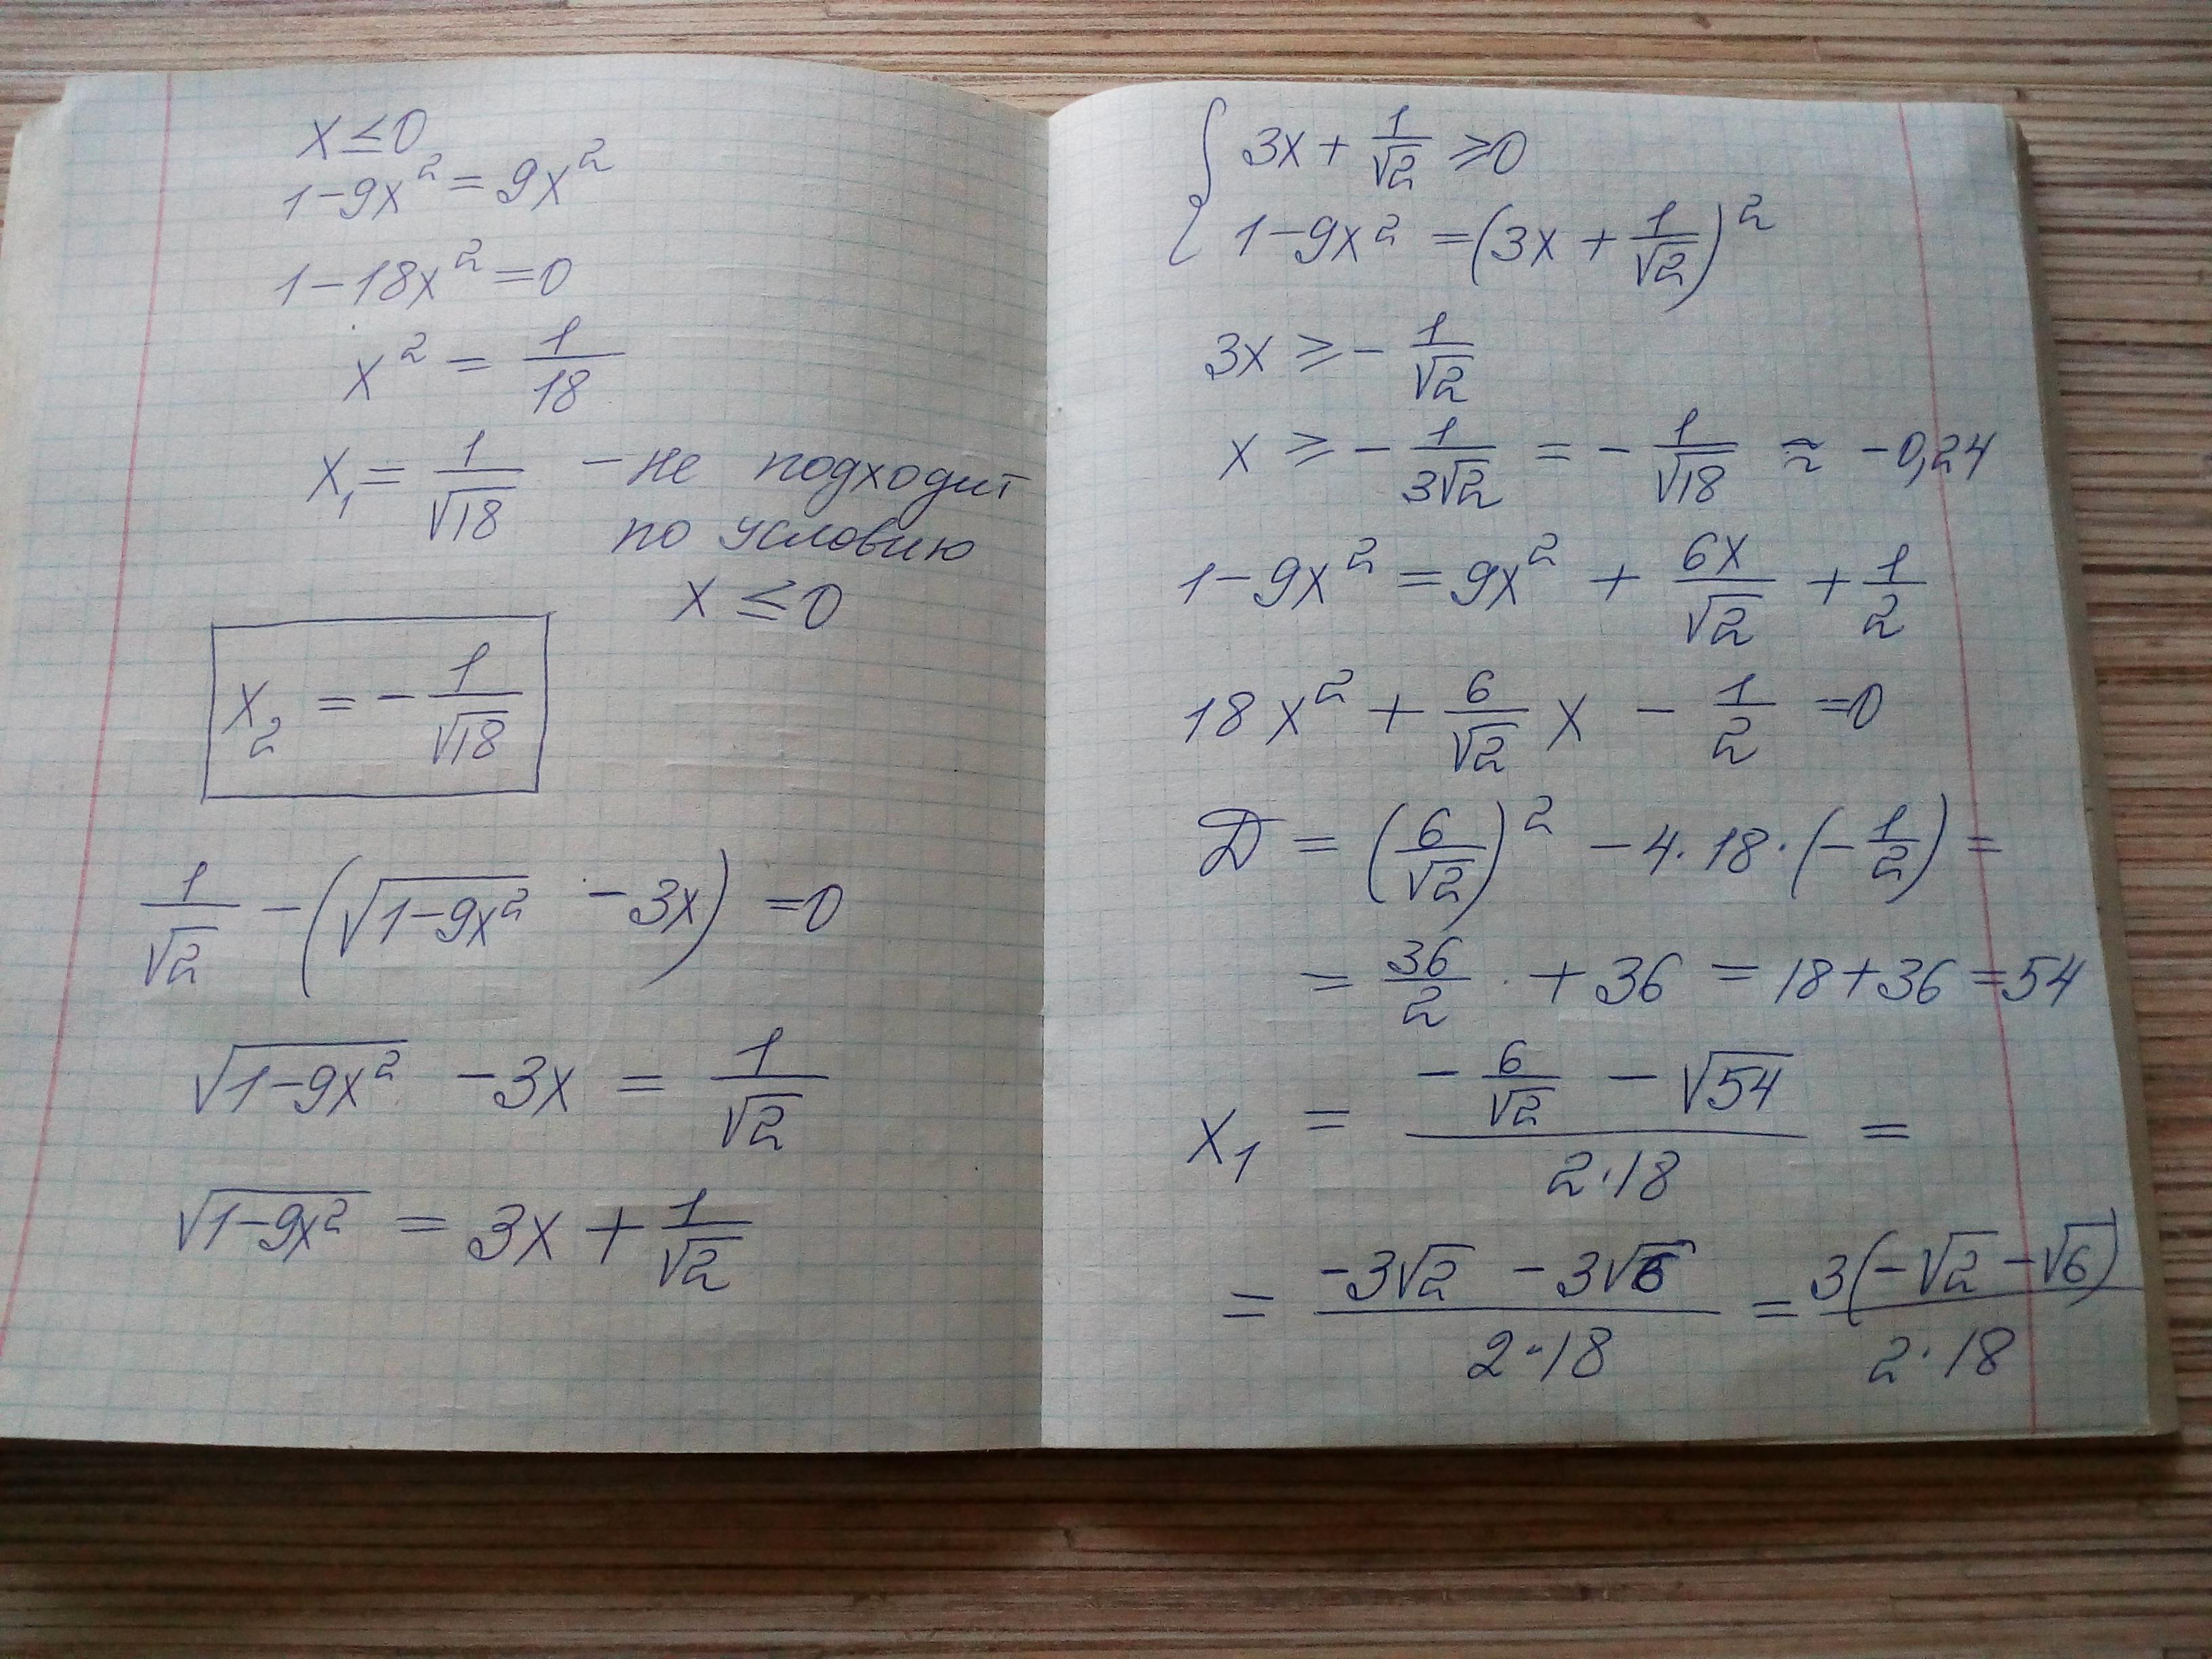 x ≤ 0
1 - 9x² = 9x²
1 - 18x² = 0
x² = 1/18
x₁ = 1/√18 - не подходит
по условию
x ≤ 0
x₂ = - 1/√18
1/√2 - (√(1-9x²) - 3x) = 0
√(1-9x²) - 3x = 1/√2
√(1-9x²) = 3x + 1/√2
{ 3x + 1/√2 ≥ 0
1 - 9x² = (3x + 1/√2)²
3x ≥ - 1/√2
x ≥ - 1/(3√2) = - 1/√18 ≈ -0,24
1 - 9x² = 9x² + 6x/√2 + 1/2
18x² + 6/√2 x - 1/2 = 0
D = (6/√2)² - 4·18·(-1/2) =
= 36/2 · + 36 = 18 + 36 = 54
x₁ = (- 6/√2 - √54)/(2·18) =
= (-3√2 - 3√6)/(2·18) = 3(-√2 - √6)/(2·18)